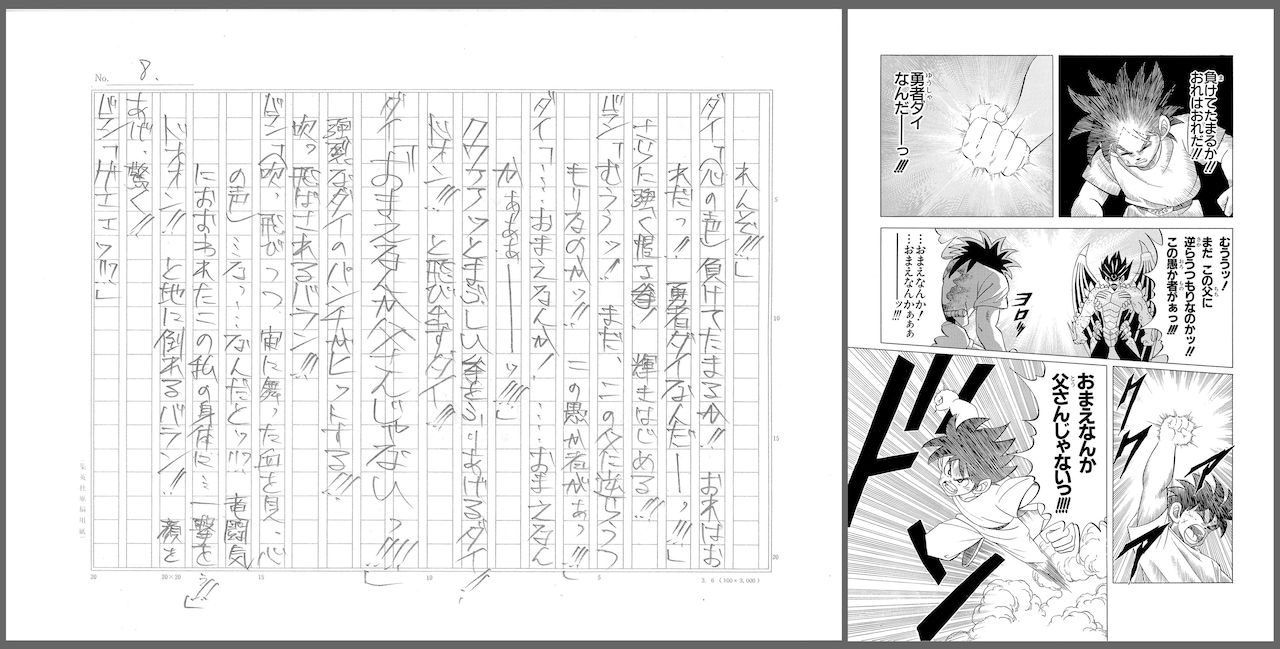 No. 8.
れんぞ!!!」
ダイ「(心の声)負けてたまるか!! おれはお
れだっ!! 勇者ダイなんだーーっ!!!」
さらに強く握る拳! 輝きはじめる!!!
バラン「むううッ! まだ、この父に逆らうつ
もりなのかッ!! この愚か者がぁっ!!!」
ダイ「……おまえなんか! ……おまえなん
かぁぁぁーーーッ!!!!」
クワァァッとまぶしい拳をふりあげるダイ!!
ドオン!! と飛び出すダイ!!
ダイ「おまえなんか父さんじゃないっ!!!!」
強烈なダイのパンチがヒットする!!!
吹っ飛ばされるバラン!!!
バラン「(吹っ飛びつつ、宙に舞った血を見、心
の声)…なっ……なんだとッ!!? 竜闘気
におおわれたこの私の身体に…一撃を…!!!」
ドオオン!! と地に倒れるバラン!! 顔を
あげ、驚く!!
バラン「ゲエエッ!!?」
5
10
15
20
集英社原稿用紙
20
20×20
15
10
5
3. 6 (100×3,000)
負けてたまるか!!
おれはおれだ!!
勇者ダイ
なんだーーっ!!!
むううッ!
まだ この父に
逆らうつもりなのかッ!!
この愚か者がぁっ!!!
ヨロッ
…おまえなんか!
…おまえなんかぁぁぁ
ーーーッ!!!
おまえなんか
父さんじゃないっ!!!!